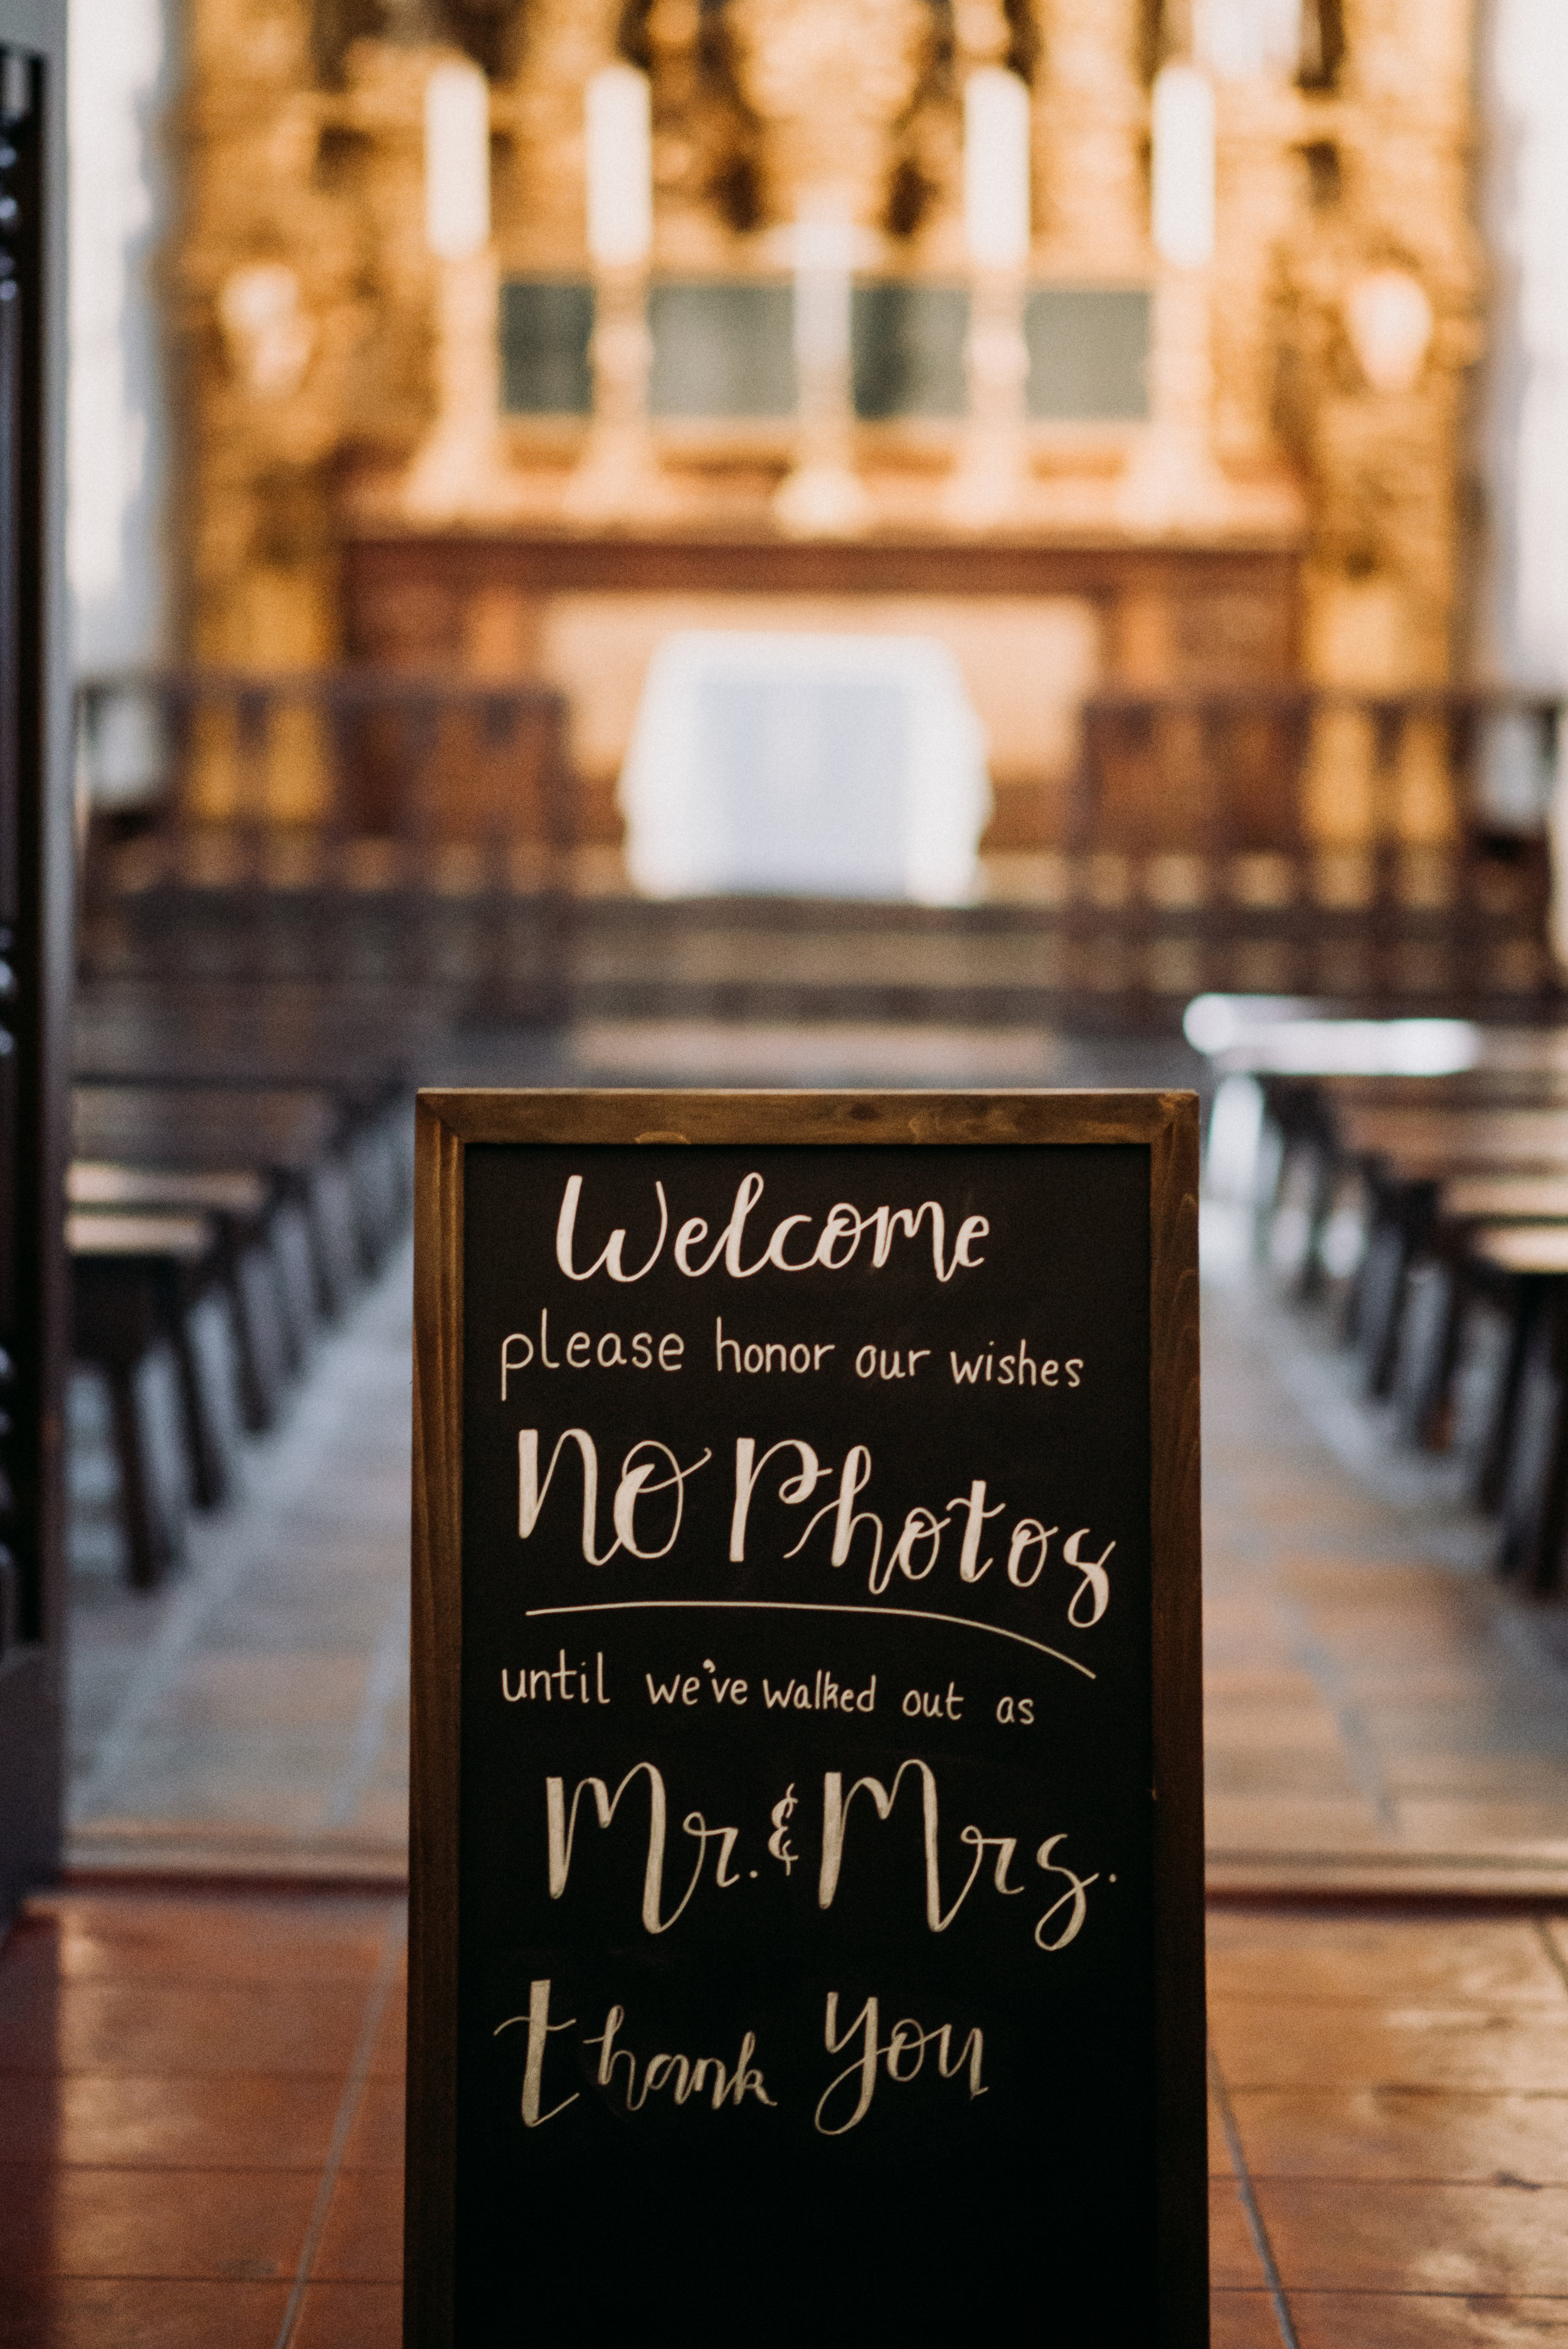 Welcome
please honor our wishes
NO Photos
until we've walked out as
Mr. & Mrs.
thank you